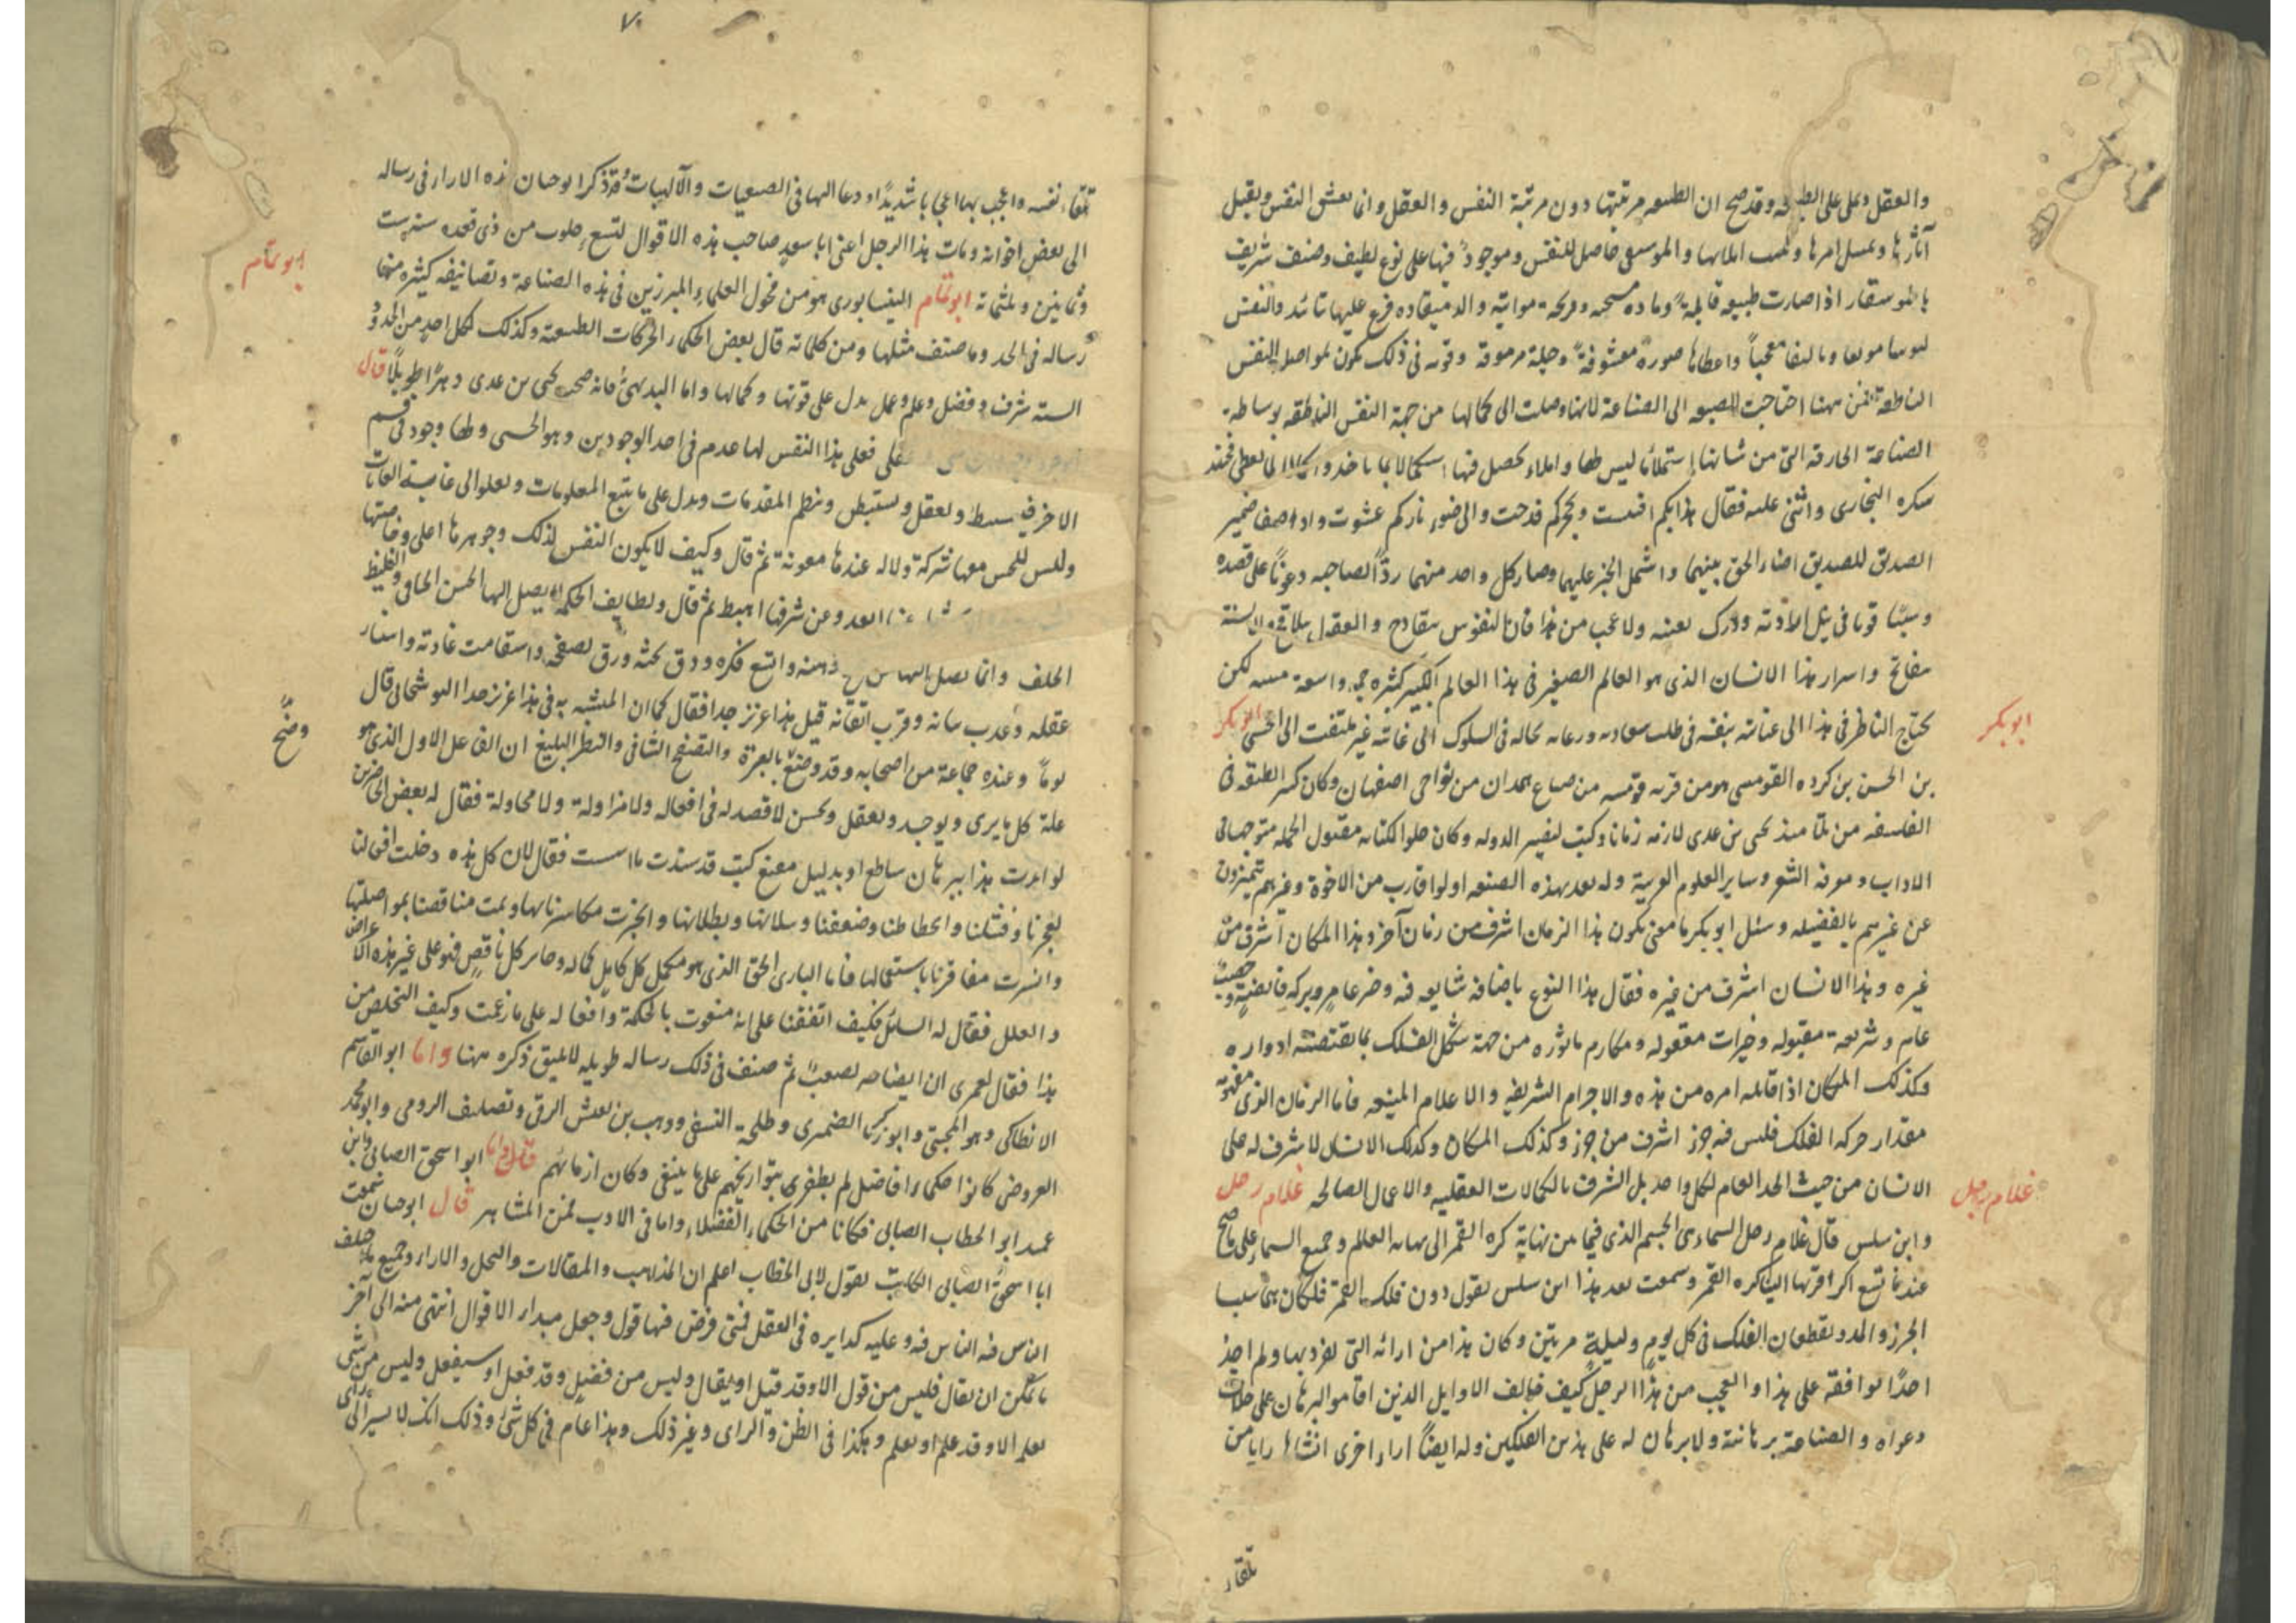 والعقل وتملى على الطبيعة وقد صح ان الطبيعه مرتبتها دون مرتبة النفس والعقل وانها تعشق النفس وتقبل
آثارها وتمتثل امرها وتكتب باملائها والموسيقى حاصل للنفس وموجود فيها على نوع لطيف وصنف شريف
فالموسيقار اذا صادف طبيعه قابلة ومادة مستجيبه وقريحة مواتية والة منقاده فرغ عليها بتائيد والنفس
لبوسا مونقا وتاليفا معجبا واعطاها صورة معشوقة وحلية مرموقة وقوته في ذلك تكون بمواصلة النفس
الناطقة فمن ههنا احتاجت الطبيعه الى الصناعة لانها وصلت الى كمالها من جهة النفس الناطقه بوساطة
الصناعة الحادقة التى من شانها استملاء ما ليس لها واملاء ما يحصل فيها استكمالا بما ياخذ وكمالا لما يعطى فعند
شكره البخارى واثنى عليه فقال
الصديق للصديق اضاء الحق بينهما واشتمل الخير عليهما وصار كل واحد منهما ردءا لصاحبه وعونا على قصده
وسببا قويا في نيل ارادته ودرك بغيته ولا عجب من هذا فان النفوس تتقادح والعقول تتلاقح والالسنة
تتفاتح واسرار هذا الانسان الذى هو العالم الصغير في هذا العالم الكبير كثيره جمه واسعة منبثه لكن
يحتاج الناظر في هذا الى عنايته بنفسه في طلب سعادته ورعايه لحاله في السلوك الى غايته غير ملتفت الى اخس ابو بكر
ابو بكر
بن الحسن بن كرده القومسى هو من قريه قومسه من ضياع همدان من نواحى اصفهان وكان كبير الطبقه في
الفلسفه من تلامذة يحيى بن عدى لازمه زمانا وكتب لنصير الدوله وكان حلو الكنايه مقبول الجمله متوجها في
الاداب ومعرفة الشعر وساير العلوم العربية وله بعد بهذه الصنعه اولوا اقارب من الاخوة وغيرهم يتميزون
عن غيرهم بالفضيله وسئل ابو بكر ما معنى بكون هذا الزمان اشرف من زمان آخر وهذا المكان اشرف من
غيره وهذا الانسان اشرف من غيره فقال هذا النوع باضافه شايعه فيه وخير عامر وبركه فايضة وخصب
عام وشريعة مقبوله وخيرات مفعوله ومكارم ماثوره من جهة شكل الفلك بما تقتضيه ادواره
وكذلك المكان اذا قابله اثره من هذه الاجرام الشريفه والاعلام المنيعه فاما الزمان الذى مفهومه
مقدار حركه الفلك فليس فيه جزء اشرف من جزء وكذلك المكان وكذلك الانسان لا شرف له على
الانسان من حيث الحد العام لكل واحد بل الشرف بالكمالات العقليه والاعمال الصالحه غلام زحل
غلام زحل
وابن سلس قال غلام زحل السماء هى الجسم الذى فيما بين نهاية كره القمر الى نهايه العالم وجميع السماء على ما صح
عندنا تسع اكر اقربها الينا كره القمر وسمعت بعد هذا ابن سلس يقول دون فلك القمر فلكان هما سببا
الجزر والمد ويقطعان الفلك في كل يوم وليلة مرتين وكان هذا من ارائه التى تفرد بها ولم اجد
احدا يوافقه على هذا والعجب من هذا الرجل كيف خالف الاوايل الذين اقاموا البرهان على خلاف
دعواه والصناعة برهانية ولا برهان له على هذين الفلكين وله ايضا اراء اخرى انشاها رايا من
تلقاء
٧٠
تلقاء نفسه واعجب بها اعجابا شديدا ودعا اليها في الطبيعيات والآلهيات وقد ذكر ابو حيان هذه الاراء في رساله
الى بعض اخوانه ومات هذا الرجل اعنى ابا سعيد صاحب هذه الاقوال لتسع خلون من ذى قعده سنه ست
وثمانين وثلثمائة ابو تمام النيسابورى هو من فحول العلماء والمبرزين في هذه الصناعة وتصانيفه كثيره منها
ابو تمام
رساله في الحد وما صنف مثلها ومن كلماته قال بعض الحكماء الحركات الطبيعية وكذلك لكل احد من الحدود
السته شرف وفضل وعلم وعمل يدل على قوتها وكمالها واما البديهى فانه صحب يحيى بن عدى دهرا طويلا قال
فعلى هذا النفس لها عدم في احد الوجودين وهو الحسى ولها وجود في قسم
الاخر وتعقل وتستنبط وتنظم المقدمات وتدل على ما ينتج المعلومات وتعلوا الى غاية الغايات
وليس للحس معها شركة ولا له عندها معونة ثم قال وكيف لا يكون النفس كذلك وجوهرها اعلى وخاصيتها
وعن شرفها اهبط ثم قال ولطايف الحكمة لا يصل اليها الحس الجافى والغليظ
الجلف وانما يصل اليها من ذهنه واتسع فكره ودق بحثه ورق تصفحه واستقامت عادته واستنار
عقله وعذب بيانه وقرب اتقانه قيل هذا عزيز جدا فقال كما ان المشبه به في هذا عزيز جدا النوشجانى قال
يوما وعنده جماعة من اصحابه وقد وضح بالعبرة والتصفح الشافى والنظر البليغ ان الفاعل الاول الذى هو
وضح
علة كل ما يرى ويوجد ويعقل ويحس لا قصد له في افعاله ولا مزاولة ولا محاولة فقال له بعض الحاضرين
لو ايدت هذا ببرهان ساطع او بدليل مقنع كنت قد سددت ما اسست فقال لان كل هذه دخلت افعالنا
لعجزنا وفشلنا وانحطاطنا وضعفنا وسيلانها وبطلانها وانجبرت مكاسرنا بها وتمت مناقصنا بمواصلتها
وانسدت مفاقرنا باستعمالها فاما البارى الحق الذى هو مكمل كل كامل كماله وجابر كل ناقص فهو على غير هذه الاعراض
والعلل فقال له السائل فكيف اتفقنا على انه منعوت بالحكمة وافعاله على ما زعمت وكيف التخلص من
هذا فقال لعمرى ان ايضاحه لصعب ثم صنف في ذلك رساله طويله لا يليق ذكره ههنا واما ابو القاسم
الانطاكى وهو المجتبى وابو زكريا الضميرى وطلحة النسفى ووهب بن يعيش الرقى ونظيف الرومى وابو محمد
العروضى كانوا حكماء افاضل لم يظفرنى بتواريخهم على ما ينبغى وكان ازمانهم قال واما ابو اسحق الصابى وابن
عمه ابو الخطاب الصابى فكانا من الحكماء الفضلاء واما في الادب فمن المشاهير قال ابو حيان سمعت
ابا اسحق الصابى الكاتب يقول لابى الخطاب اعلم ان المذاهب والمقالات والنحل والاراء وجميع ما اختلف
الناس فيه وعليه كدايره في العقل فمتى فرض فيها قول وجعل مبداء الاقوال انتهى منه الى اخر
ما يمكن ان يقال فليس من قول الا وقد قيل او يقال وليس من فعل وقد فعل او سيفعل وليس من شئ
يعلم الا وقد علم او يعلم وهكذا في الظن والراى وغير ذلك وهذا عام في كل شئ وذلك انك لا تسير الى راى